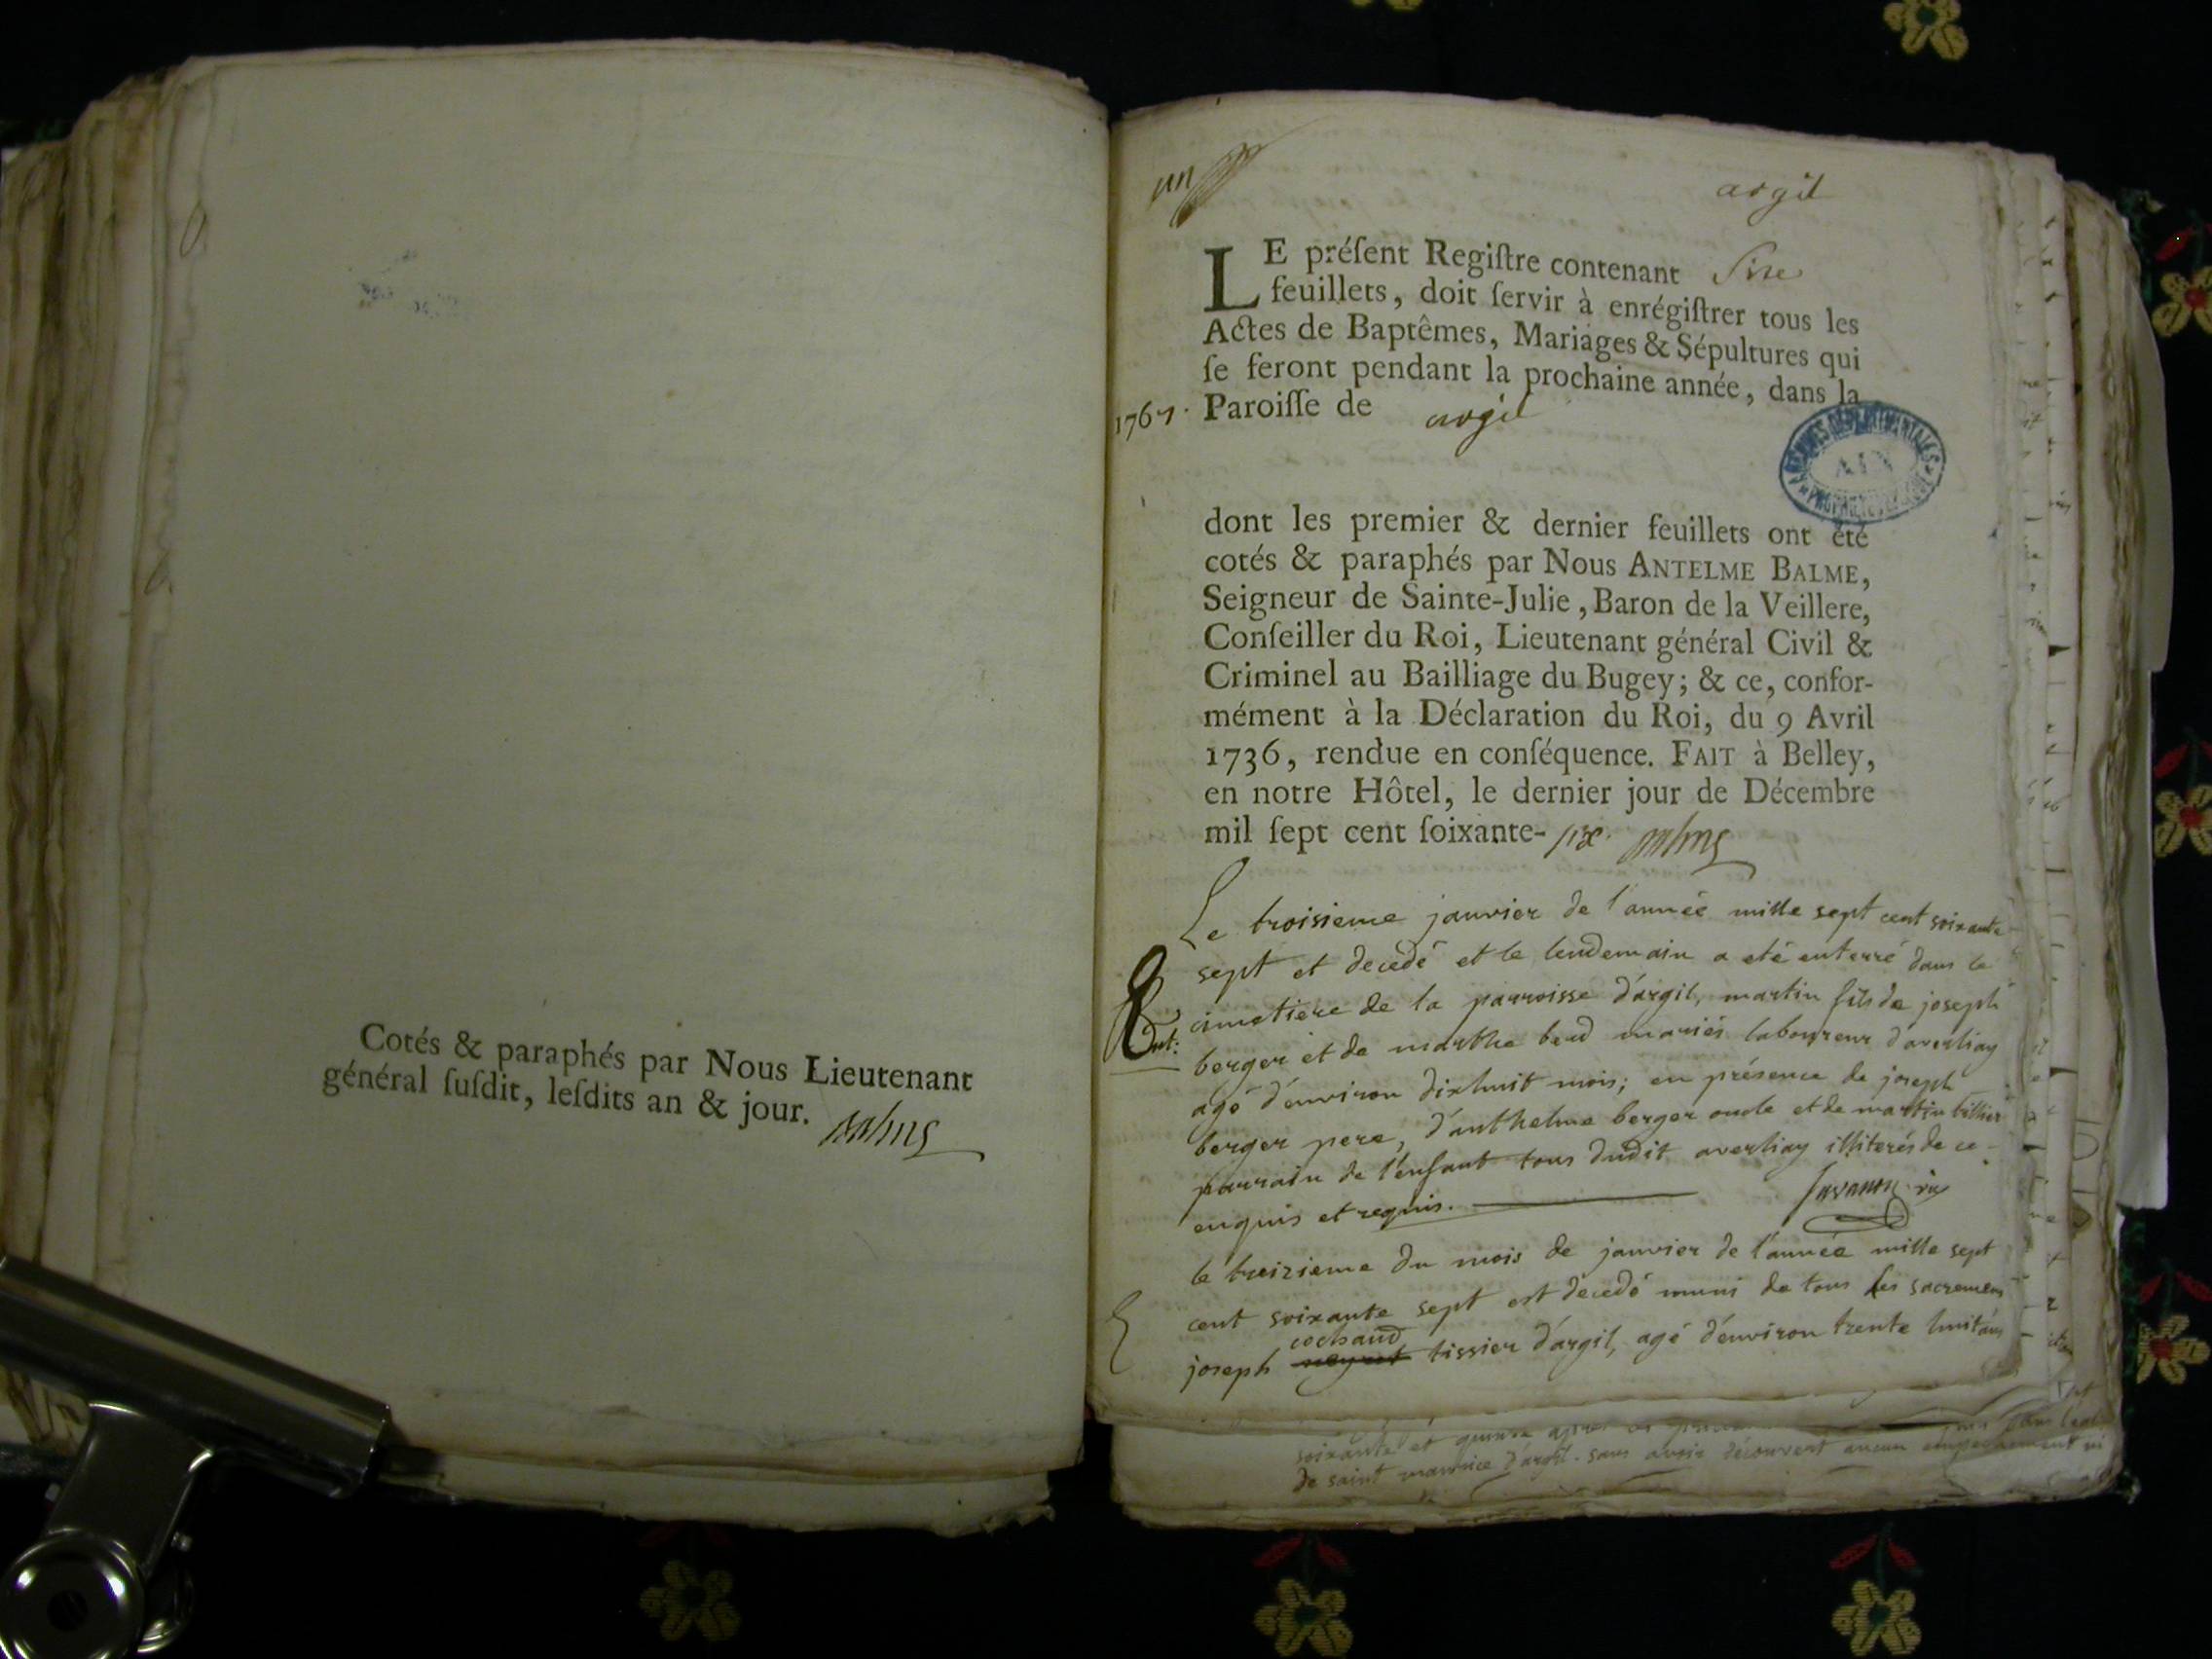 Cotés & paraphés par Nous Lieutenant
général ſuſdit, leſdits an & jour.
un
argil
LE préſent Regiſtre contenant Sixe
feuillets, doit ſervir à enrégiſtrer tous les
Actes de Baptêmes, Mariages & Sépultures qui
ſe feront pendant la prochaine année, dans la
1767. Paroiſſe de argil
ARCHIVES DÉPARTEMENTALES
AIN
dont les premier & dernier feuillets ont été
cotés & paraphés par Nous ANTELME BALME,
Seigneur de Sainte-Julie, Baron de la Veillere,
Conſeiller du Roi, Lieutenant général Civil &
Criminel au Bailliage du Bugey; & ce, confor-
mément à la Déclaration du Roi, du 9 Avril
1736, rendue en conſéquence. FAIT à Belley,
en notre Hôtel, le dernier jour de Décembre
mil ſept cent ſoixante- six. Balme
Le troisieme janvier de l'année mille sept cent soixante
sept et decedé et le lendemain a eté enterré dans le
cimetiere de la parroisse d'argil, martin fils de joseph
berger et de marthe mariés laboureur d'averliay
agé d'environ dixhuit mois; en présence de joseph
berger pere, d'anthelme berger oncle et de martin billier
parrain de l'enfant tous dudit averliay illiterés de ce
enquis et requis.
le treizieme du mois de janvier de l'année mille sept
cent soixante sept est decedé muni de tous les sacremens
cochaud
joseph tissier d'argil, agé d'environ trente huit ans
soixante et quinze apres
de saint maurice d'argil. sans avoir découvert aucun empechement ni